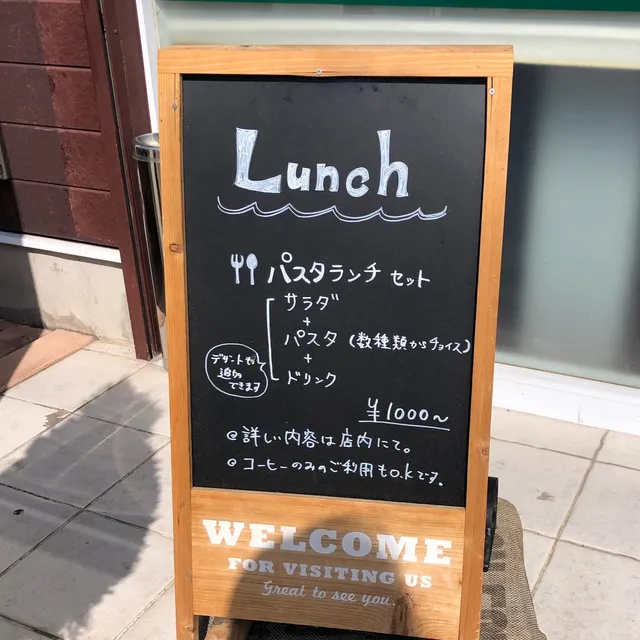 Lunch
パスタランチ セット
サラダ
+
パスタ (数種類からチョイス)
+
ドリンク
デザートも
追加
できます
¥1000~
@詳しい内容は店内にて。
@コーヒーのみのご利用もo.kです。
WELCOME
FOR VISITING US
Great to see you.